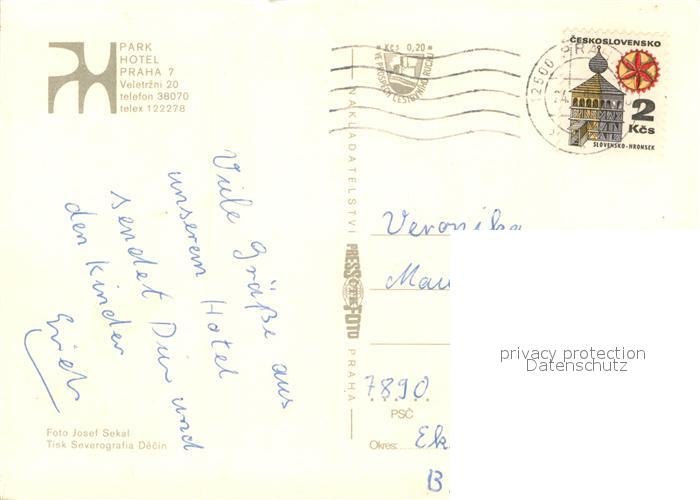 PARK
HOTEL
PRAHA 7
Veletržní 20
telefon 38070
telex 122278
Viele Grüße aus
unserem Hotel
sendet Dir und
den Kinder
Erich
Foto Josef Sekal
Tisk Severografia Děčín
NAKLADATELSTVÍ PRESSFOTO PRAHA
Kčs 0,20
ČESKOSLOVENSKO
2
Kčs
SLOVENSKO-HRONSEK
Veronika
Mau
7890
PSČ
Okres: Ek
B
privacy protection
Datenschutz